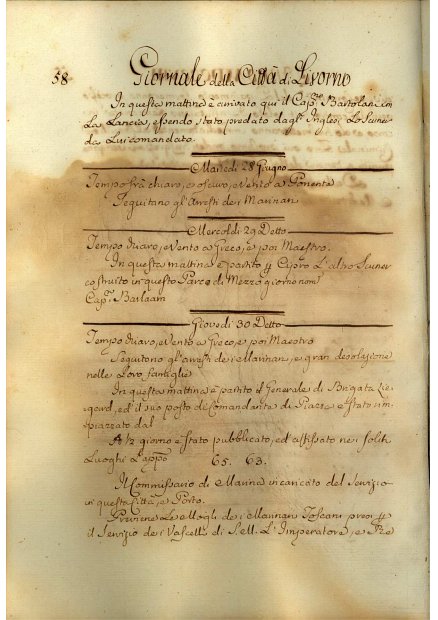 58 Giornale della Città di Livorno
In questa mattina è arrivato qui il Cap.no Bartolani in
La Lancia, essendo stato predato dagl' Inglesi Lo Scuner
da Lui comandato.
Martedi 28 Giugno
Tempo frà chiaro, e oscuro, e Vento a Ponente
Seguitano gl' Arresti dei Marinari
Mercoldi 29 Detto
Tempo chiaro, e Vento a Greco, e poi Maestro.
In questa mattina è partito p Cipro L' altro Scuner
costruito in questo Parco di Mezzo giorno
Cap.no Barlaam
Giovedi 30 Detto
Tempo chiaro, e Vento a Greco, e poi Maestro
Seguitono gl' arresti dei Marinari, e gran desolazione
nelle Loro famiglie
In questa mattina è partito il Generale di Brigata
ed' il suo posto di Comandante di Piazza è stato rim-
piazzato dal
A 1/2 giorno è stato pubblicato, ed' affissato nei soliti
Luoghi L' app.o 65. 63.
Il Commissario di Marina incaricato del Servizio
in questa Città, e Porto.
Previene Le Mogli dei Marinari Toscani presi p
il Servizio dei Vascelli di S. M. L' Imperatore, e Re